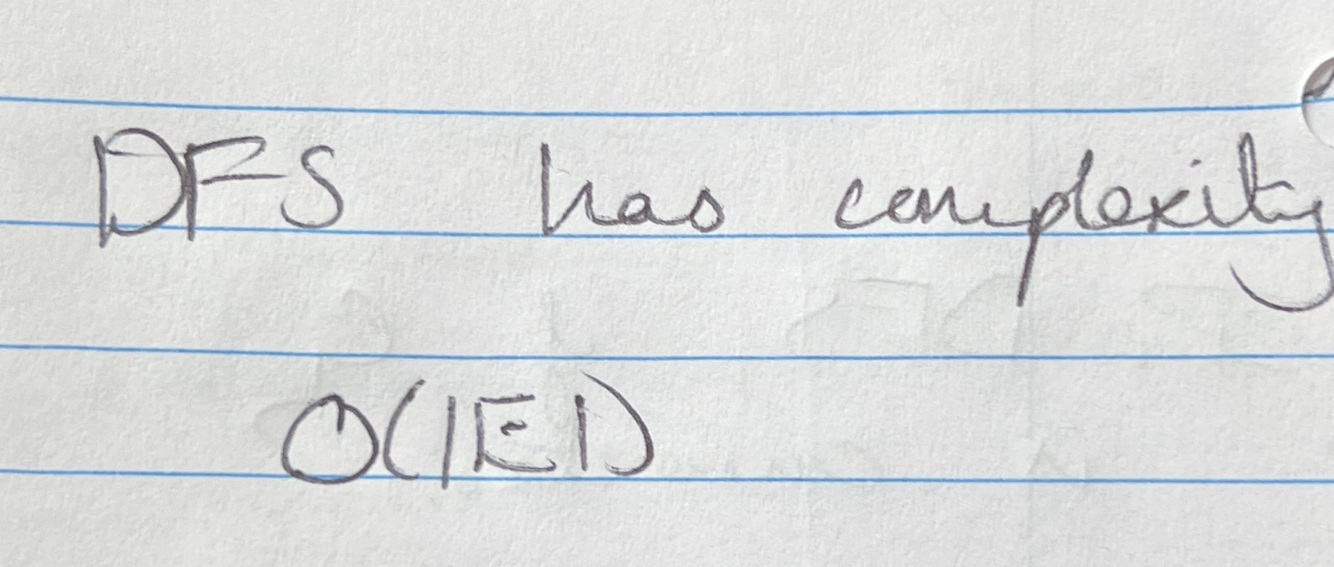 DFS has complexity
O(|E|)